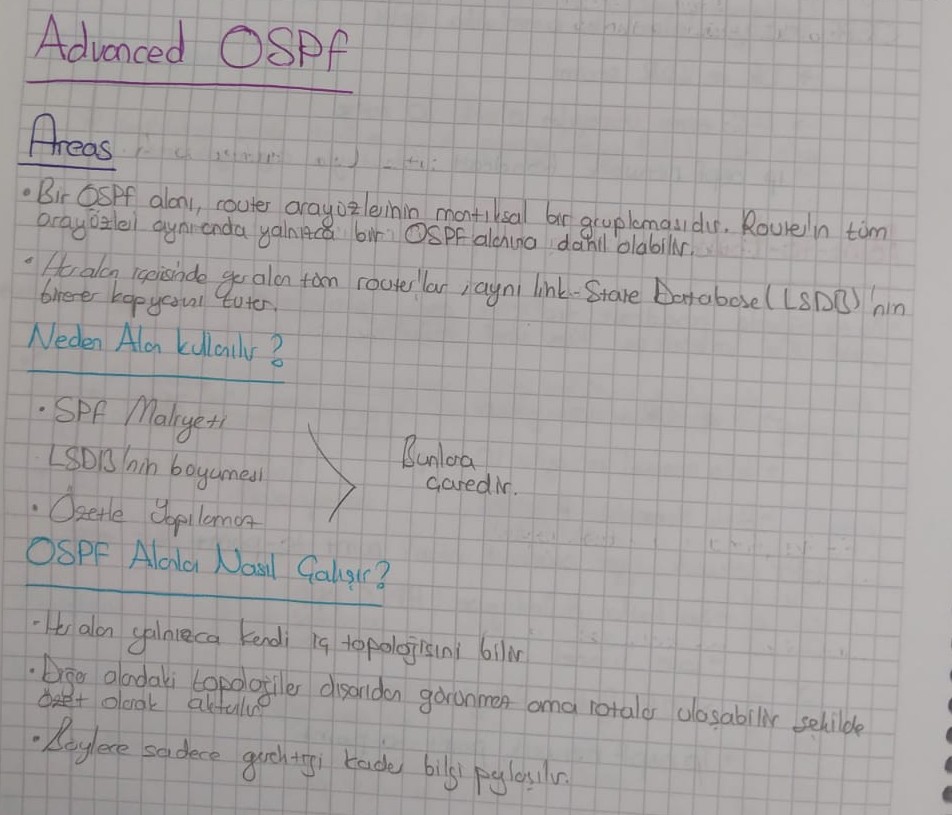 Advanced OSPf
Areas
• Bir OSPF alanı, router arayüzlerinin mantıksal bir gruplamasıdır. Router'ın tüm
arayüzleri aynı anda yalnızca bir OSPF alanına dahil olabilir.
• Her alan içerisinde yer alan tüm router'lar, aynı link-State Database (LSDB)'nin
birerer kopyasını tutar.
Neden Alan kullanılır?
• SPF Maliyeti
LSDB'nin büyümesi
Bunlara
çaredir.
• Özetle Yapılamaz
OSPF Alanları Nasıl Çalışır?
• Her alan yalnızca kendi iç topolojisini bilir
• Diğer alandaki topolojiler dışarıdan görünmez ama rotalar ulaşabilir şekilde
özet olarak aktarılır
• Böylece sadece gerektiği kadar bilgi paylaşılır.